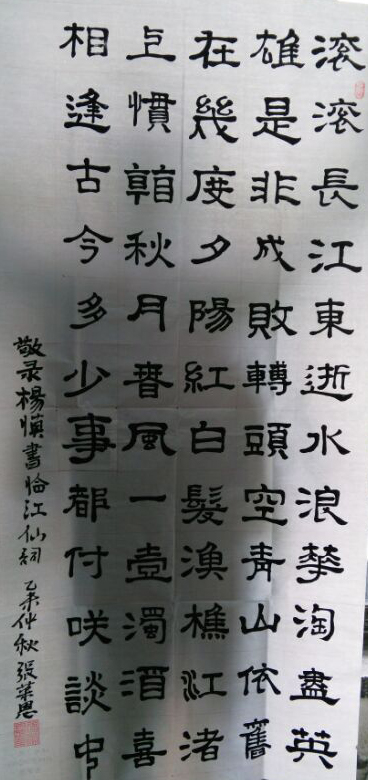 滚滚長江東逝水浪華淘盡英
雄是非成敗轉頭空青山依舊
在幾度夕陽紅白髮漁樵江渚
上慣韽秋月春風一壺濁酒喜
相逢古今多少事都付咲談中
敬录楊慎書臨江仙詞 乙未仲秋 張葉恩